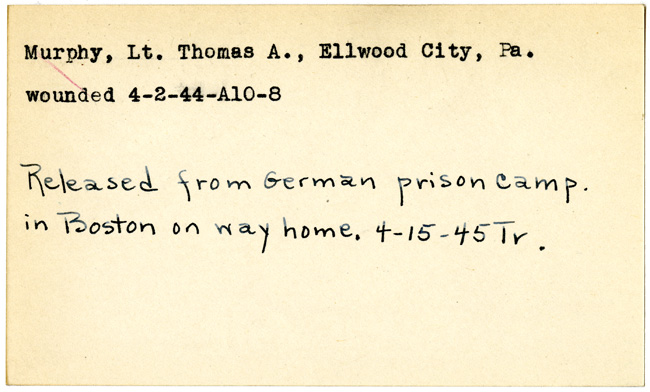 Murphy, Lt. Thomas A., Ellwood City, Pa.
wounded 4-2-44-A10-8
Released from German prison camp.
in Boston on way home. 4-15-45 Tr.